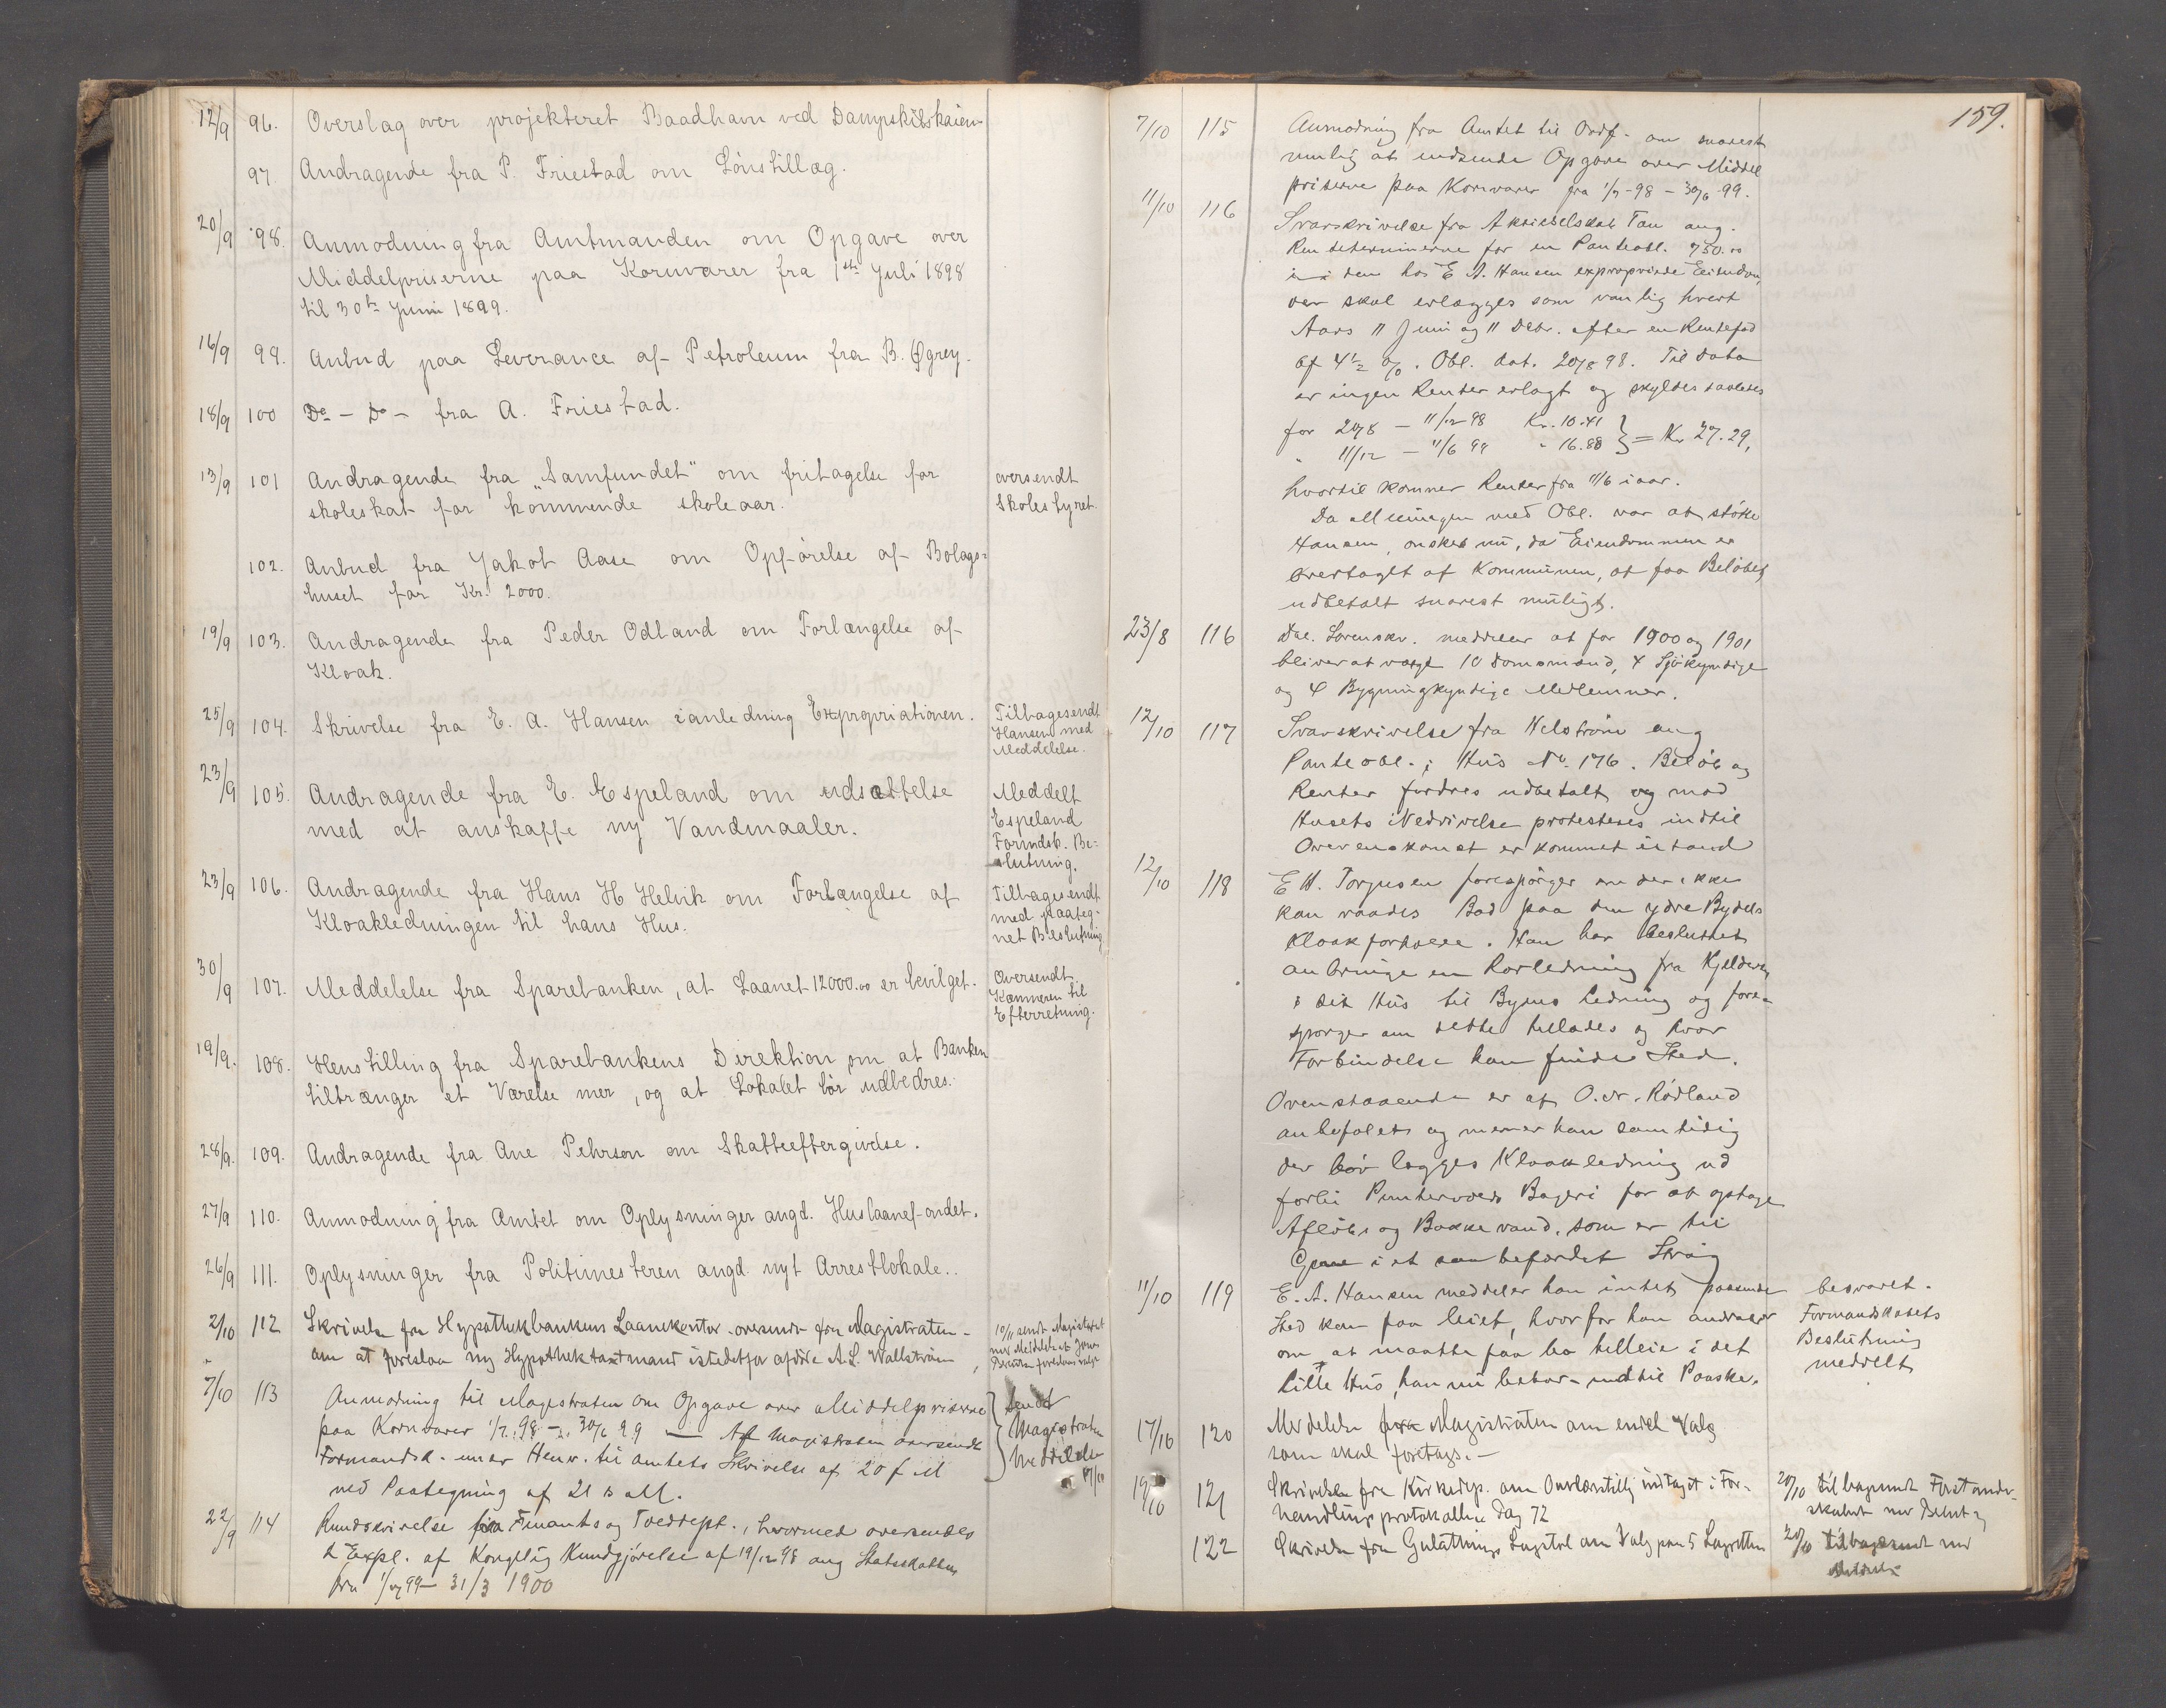 12/9 96. Overslag over projekteret Baadhavn ved Dampskibskaien
97. Andragende fra P. Friestad om Lönstillæg.
20/9 98. Anmodning fra Amtmanden om Opgave over
Middelpriserne paa Kornvarer fra 1ste Juli 1898
til 30te Juni 1899.
16/9 99. Anbud paa Leverance af Petroleum fra B. Øgrey.
18/9 100 Do - Do - fra A. Friestad.
13/9 101 Andragende fra „Samfundet" om fritagelse for oversendt
skoleskat for kommende skoleaar. Skolestyret.
102. Anbud fra Jakob Aase om Opförelse af Bolags=
huset for Kr. 2000.
19/9 103. Andragende fra Peder Odland om Forlængelse af
Kloak.
25/9 104. Skrivelse fra E. A. Hansen i anledning Expropriationen. Tilbagesendt
Hansen med
Meddelelse.
23/9 105. Andragende fra E. Espeland om udsættelse Meddelt
med at anskaffe ny Vandmaaler. Espeland
Formdsk. Be=
slutning.
23/9 106. Andragende fra Hans H Helvik om Forlængelse af Tilbagesendt
Kloakledningen til hans Hus. med paateg-
net Beslutning
30/9 107. Meddelelse fra Sparebanken, at Laanet 12000.00 er bevilget. Oversendt
Kæmneren til
Efterretning.
19/9. 108. Henstilling fra Sparebankens Direktion om at Banken
tiltrænger et Værelse mer, og at Lokalet bör udbedres.
28/9. 109. Andragende fra Ane Pehrson om Skatteeftergivelse.
27/9 110. Anmodning fra Amtet om Oplysninger angd. Huslaanefondet.
26/9 111. Oplysninger fra Politimesteren angd. nyt Arrestlokale..
2/10 112 Skrivelse fra Hypothekbankens Laanekontor oversendt fra Magistraten -
om at foreslaa ny Hypothektaxtmand istedetfor afdöde A.L. Wallström
7/10 113 Anmodning til Magistraten om Opgave over Middelpriserne sendt
paa Kornvarer 1/7.98 - 30/6 99 — Af Magistraten oversendt Magistraten
Formandsk. under Henv. til Amtets Skrivelse af 20 f M Meddelelse
ved Paategning af 21 s M. 17/10
22/9 114 Rundskrivelse fra Finants og Tolddept., hvormed oversendes
2 Expl. af Kongelig Kundgjörelse af 19/12 98 ang Statsskatten
fra 1/7 99 - 31/3 1900
159.
7/10 115 Anmodning fra Amtet til Ordf. om snarest
mulig at indsende Opgave over Middel
priserne paa Kornvarer fra 1/7-98 - 30/6 99.
11/10 116 Svarskrivelse fra Aktieselskab Tau ang.
Renteterminerne for en Panteobl. 750.00
i den hos E. A. Hansen exproprierede Eiendom,
der skal erlægges som vanlig hvert
Aars 11 Juni og 11 Decbr. efter en Rentefod
af 4 1/2 %. Obl. dat. 20/8 98. Til Dato
er ingen Renter erlagt og skyldes saaledes
for 20/8 - 11/12 98 Kr. 10.41
" 11/12 - 11/6 99 " 16.88 } = Kr 27.29,
hvortil kommer Renter fra 11/6 i aar.
Da Meningen med Obl. var at stötte
Hansen, önskes nu, da Eiendommen er
overtaget af Kommunen, at faa Belöbet
udbetalt snarest muligt.
23/8 116 Dal. Sorenskr. meddeler at for 1900 og 1901
bliver at vælge 10 Domsmænd, 4 Sjökyndige
og 4 Bygningkyndige Medlemmer.
12/10 117 Svarskrivelse fra Helström ang
Panteobl. i Hus No. 176. Belöb og
Renter fordres udbetalt og mod
Husets Nedrivelse protesteres indtil
Overenskomst er kommet istand
12/10 118 E H. Torgusen forespörger om der ikke
kan raades Bod paa den ydre Bydels
Kloakforholde. Han har besluttet
anbringe en Rörledning fra Kjelderen
i sit Hus til Byens Ledning og fore-
spörger om dette tillades og hvor
Forbindelse kan finde Sted.
Ovenstaaende er af O. N. Rödland
anbefalet og mener han samtidig
der bör lægges Kloakledning ud
forbi Puntervolds Bageri for at optage
Aflöbs og Bakkevand, som er til
Gene i et saa befærdet Strög
11/10 119 E. A. Hansen meddeler han intet passende besvaret.
Sted kan faa leiet, hvorfor han andrager Formandskabets
om at maatte faa bo tilleie i det Beslutning
lille Hus, han nu bebor indtil Paaske. meddelt
17/10 120 Meddelelse fra Magistraten om endel Valg
som skal foretages. -
19/10 121 Skrivelse fra Kirkedep. om indtaget i For- 20/10 tilbagesendt
handlingsprotokollen Pag 72
122 Skrivelse fra Gulathings Lagstol om Valg paa 5 Lagretten 20/10 tilbagesendt med